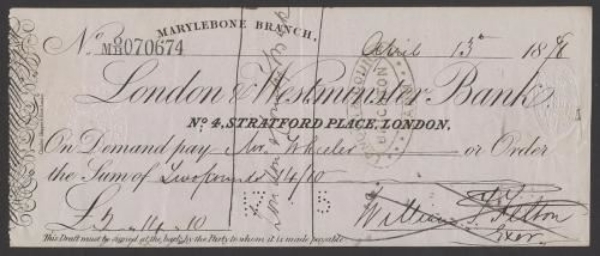 MARYLEBONE BRANCH.
No. M/B 070674
April 13th 18
London & Westminster Bank.
No. 4, STRATFORD PLACE, LONDON.
On Demand pay Mr. Wheeler or Order
the Sum of Two pounds 14/10
£2 - 14 - 10
William S Filton
Exor.
This Draft must be signed at the back by the Party to whom it is made payable